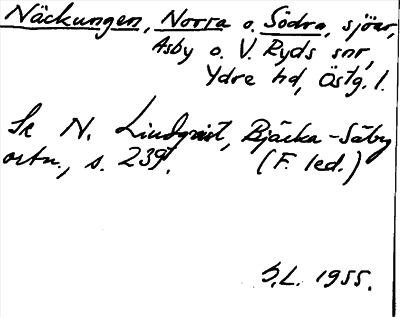 Näckungen, Norra o. Södra, sjöar,
Asby o. V. Ryds snr,
Ydre hd, Östg. l.
Se N. Lindqvist, Bjärka-Säby
ortn., s. 239.
(F. led.)
S.L. 1955.